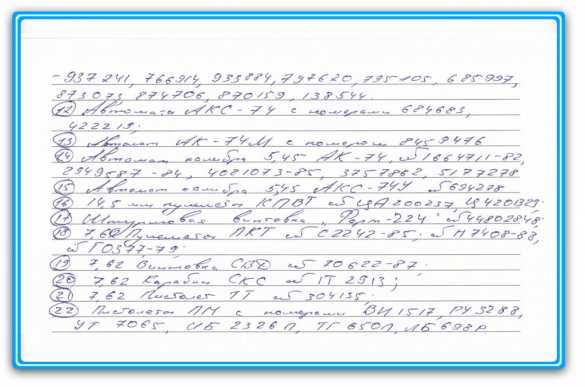 -937241, 766914, 933884, 797620, 795105, 685997,
873073, 874706, 870159, 138544.
12 Автоматы АКС-74 с номерами 684683,
422219;
13 Автомат АК-74М с номером 8459476
14 Автомат калибра 5,45 АК-74, № 1664711-82,
2949587-84, 4021073-85, 3757862, 5177278
15 Автомат калибра 5,45 АКС-74У № 694278
16 14,5 мм пулеметы КПВТ № ЦА200237, Ц420129;
17 Штурмовая винтовка „Форт-224" № 44802848;
18 7,62 Пулеметы ПКТ № С2242-85; № Н7408-88,
№ ГО377-79;
19 7,62 Винтовка СВД № 70622-87.
20 7,62 Карабин СКС № 1Т 2913;
21 7,62 Пистолет ТТ № 304135;
22 Пистолеты ПМ с номерами ВИ 1517, РУ 3288,
УТ 7065, ИБ 2326 П, ТГ 650П, ЛБ 698Р